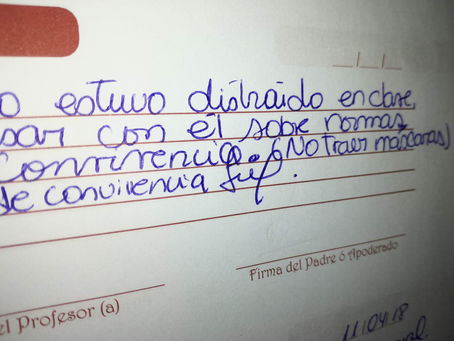 o estuvo distraido en clase,
sar con él sobre normas
Convivencia. (No traer máscaras)
de convivencia
Firma del Padre ó Apoderado
el Profesor (a)
11/04/18